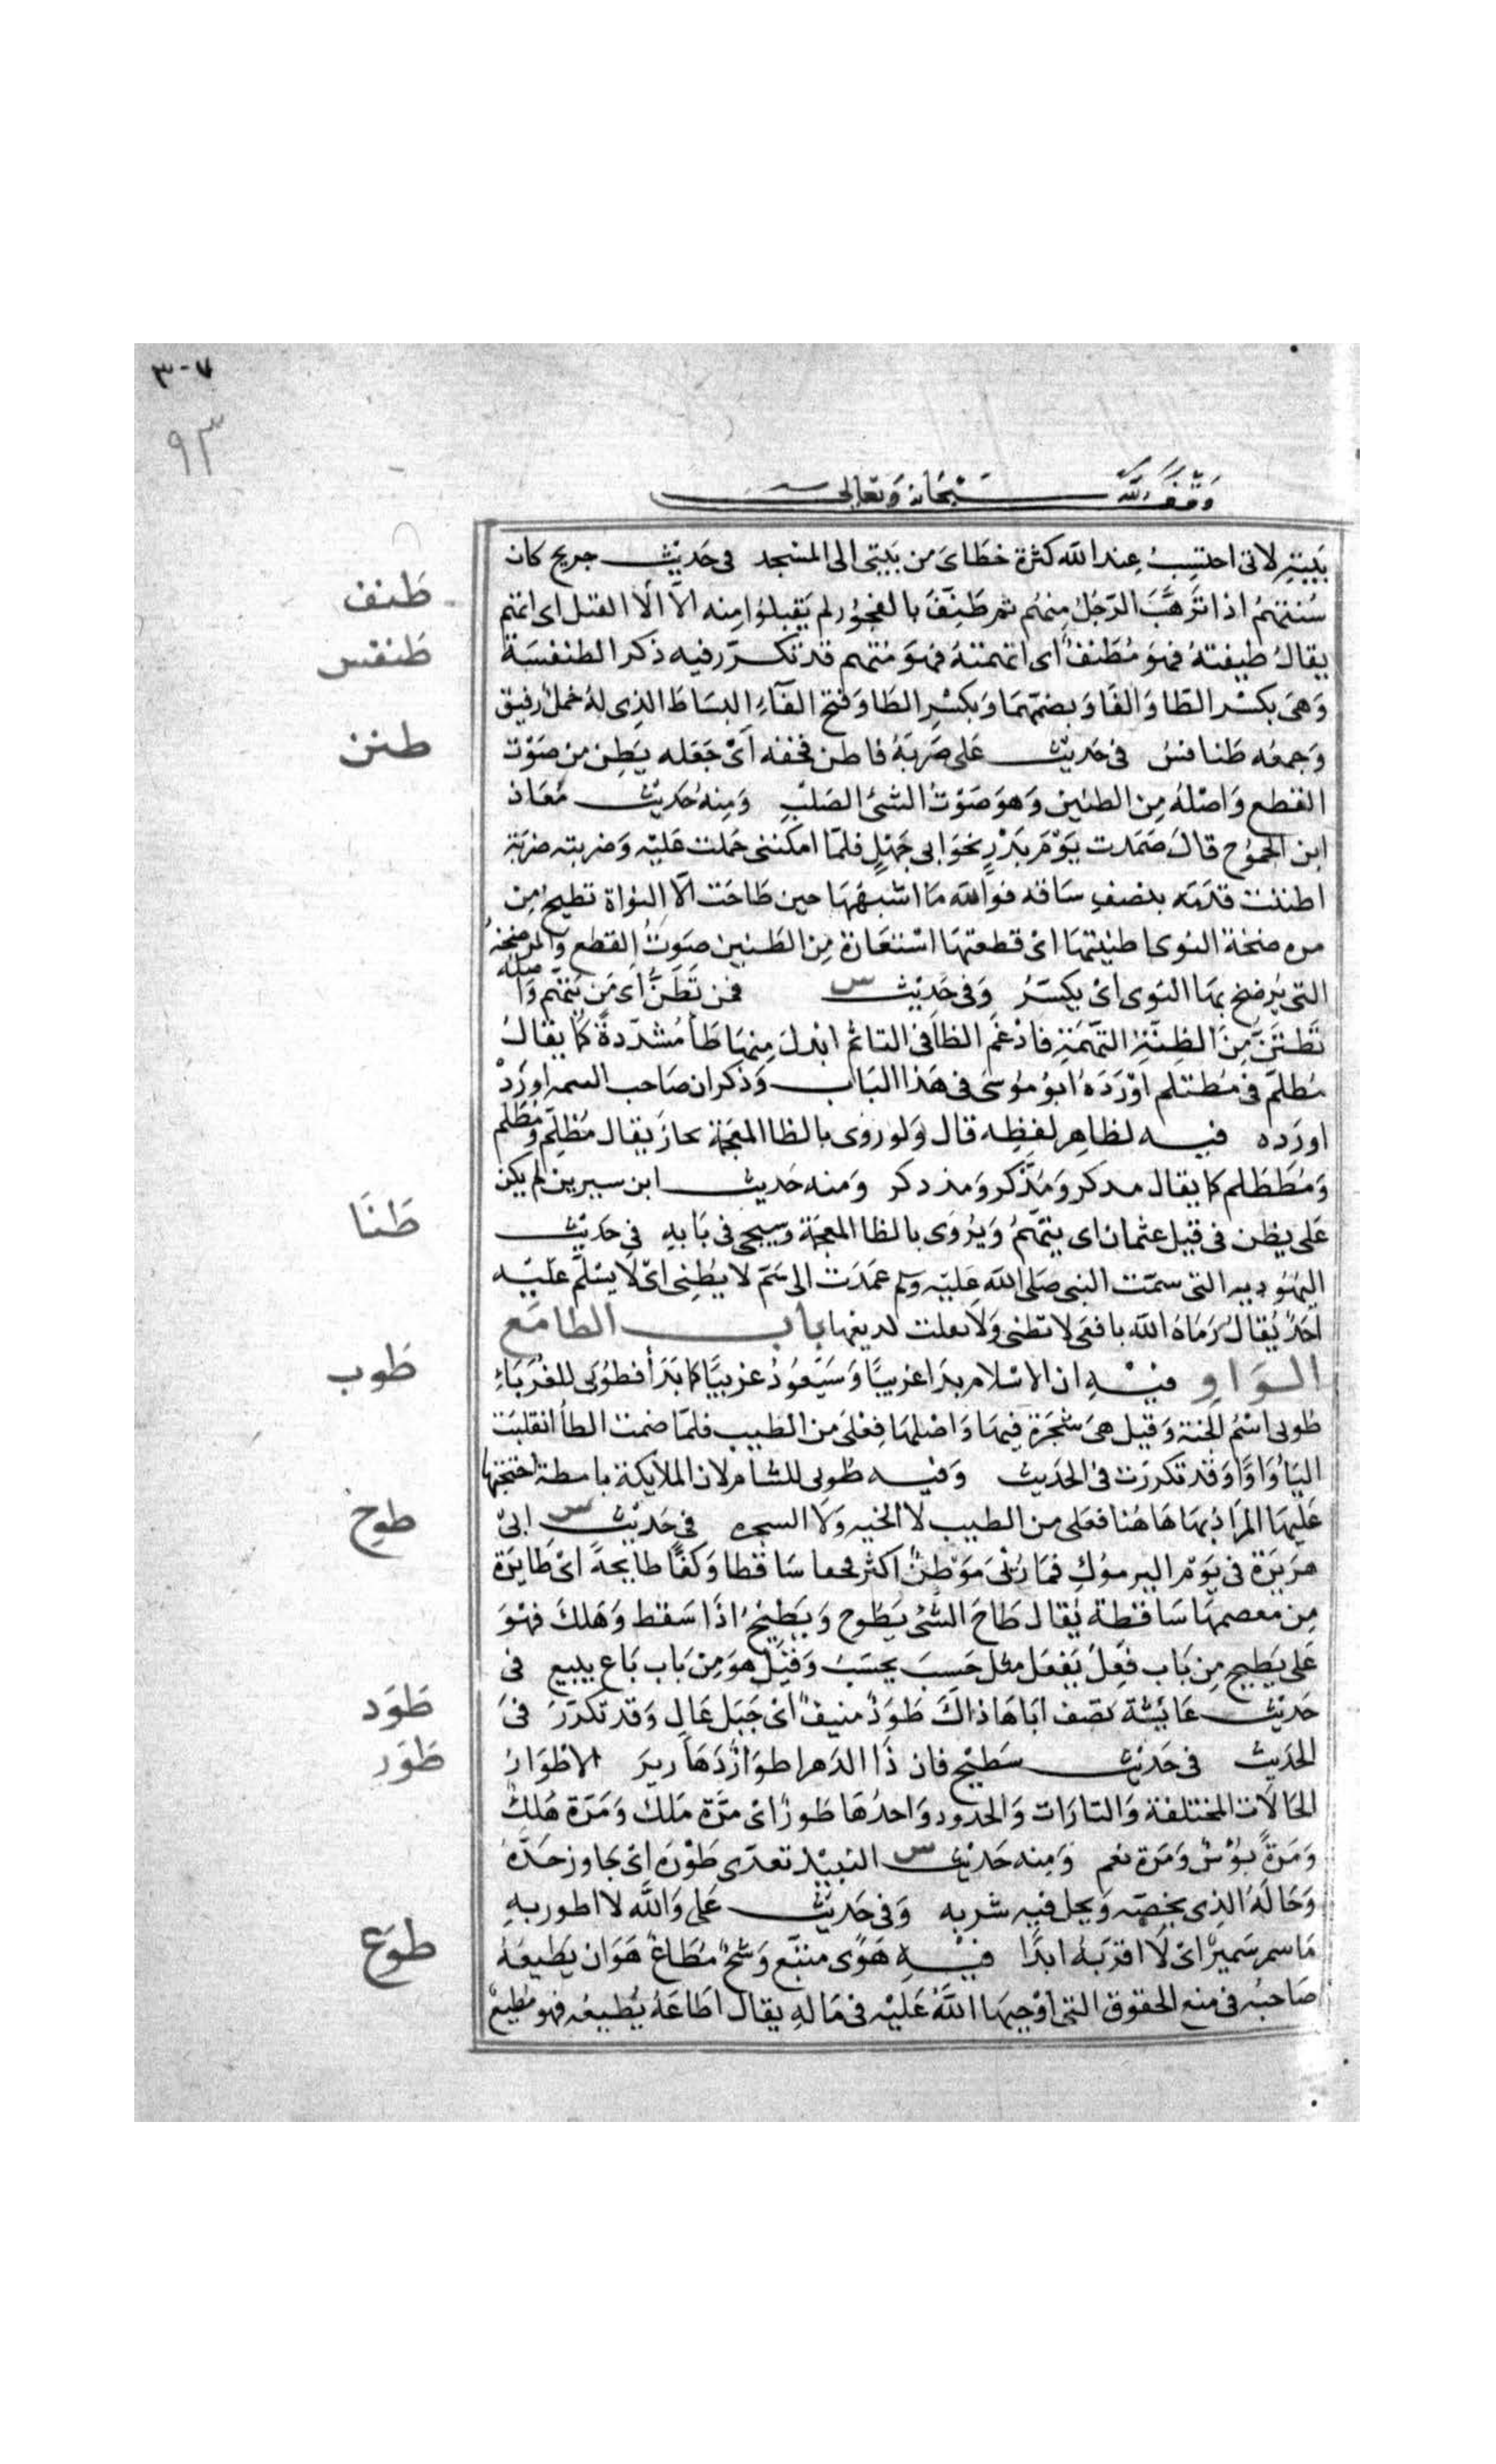 ٣-٧
٩٣
وقف لله سبحانه وتعالى
بَيته لانى احتسِبُ عِند الله كثرة خطَاىَ من بَيتى الى المسْجد فى حَديث جريج كان
طَنف
سُنتهمُ اذا تَرهَّبَ الرّجُلُ مِنهُم ثم طَنِّفَ بالفجُور لم يَقبلوُا مِنه الاَّ الاَّ القتل اى اتهم
طنفس
يقالُ طيفتهُ فهوَ مُطَنفٌ اى اتهمتهُ فهوَ متهم قد تكرّر فيه ذكر الطنفسَة
وَهىَ بكسْر الطَا وَالفَا وَبضمّهمَا وَبكسْرِ الطَا وَفتح الفآءِ البسَاط الذِى لهُ خملٌ رفيق
طنن
وَجمعُه طَنافسُ فى حَديث عَلى ضَربَهُ فاطن قحفه اَىْ جَعَله يَطِن من صَوْت
القطع وَاصْلهُ مِن الطنين وَهوَ صَوْتُ الشىْ الصَلبِ وَمنِهُ حَديث مُعَاذ
ابن الجموُح قالَ صَمَدت يَوْمَ بَدْرٍ نحوَ ابى جَهْلٍ فلمّا امكننى حَملت عَليْه وَضربته ضربَة
اطننت قدَمَه بنصفِ سَاقه فوَالله مَا اشبهَهَا حين طَاحَت الاّ النوَاة تطيحُ مِن
مرضخة النوىا طنيتهَا اىْ قطعتهَا استعَارَة مِن الطَنين صَوتُ القطع وَالمرضخةُ
التى يُرضخ بهَا النوَى اىْ يكسَرُ وَفى حَديث س فمن تَطَنُّ اَى مَن تتهم وَاصله
تَطْتَنُّ مِنَ الظِنَّةِ التهَمَةِ فادْغمَ الظا فى التا ثم ابدلَ مِنهَا طَأ مُشدّدةً كمَا يقالُ
مُطلم فى مُظتلم اوْرَدَهُ ابوُ موُسَى فى هَذا البَاب وَذكر ان صَاحب التتمه اورَدْ
اورَده فيه لظاهِر لفظِه قال وَلو روى بالظا المعجمَة لجاز يقال مُظلِم وَمُطلم
وَمُظطلم كما يقال مدكر وَمُذّكر وَمذدكر وَمنه حَديث ابن سيرين لم يكن
طَنَا
عَلى يظن فى قتل عثمان اى يتهَمُ وَيُروَى بالظا المعجمَة وَسيجى فى بَابهِ فى حَديث
اليهُوديه التى سمّت النبى صَلى الله عليه وَلم عمَدَت الى سَمّ لا يُطنِى اىْ لا يسْلم عَليْه
احَدٌ يُقالُ رَمَاهُ الله بافعَى لا تطنى وَلا يفلت لديغهَا باب الطا مَع
طوب
الوَاوِ فيْهِ ان الاسْلام بدَا غريبًا وَسَيَعُودُ غريبًا كما بَدَأ فطوُبَى للغُرَبَاءِ
طوُبى اسْمُ الجنة وَقيل هىَ شجَرَة فيهَا وَاصْلهَا فِعْلى مَن الطيب فلمّا ضمت الطا انقلبَت
اليَاُ وَاوًا وَقد تكرَرت فى الحَديث وَفيه طوُبى للشام لان الملايكة باسطة اجنحتها
طوح
عَليهَا المرَادُ بهَا هَا هُنا فعَلى من الطيب لا الجنه وَلا الشجره فى حَديث س ابىْ
هرَيرَة فى يَوْم اليرموُكِ فمَا رُئىَ مَوْطنٌ اكثر قحفا سَاقطا وَكفّا طايحةً اىْ طَايرَة
مِن معصمهَا سَاقطة يُقال طَاحَ الشىْ يَطوُح وَيَطيْحُ اذَا سَقط وَهَلكَ فهْوَ
عَلى يَطيح مِن بَاب فَعِلَ يَفعَل مثل حَسِبَ يحسَبُ وَقيْل هوَ مِن بَاب بَاع يبيع فى
طَوَد
حَديث عَايشة تصَف ابَاهَا ذاكَ طَوَدٌ منيفٌ اىْ جَبَل عَالٍ وَقد تكرّرَ فىَ
طَوَر
الحَديث فى حَديث سَطيْح فان ذَا الدَهر اطوَارٌ دَهَاريرَ الاطوَارُ
الحَالَات المختلفة وَالتارَات وَالحدُود وَاحدُهَا طَورٌ اىْ مرَّة مَلكَ وَمَرَة هَلكٌ
وَمَرةً بُؤْسٌ وَمَرَة نعم وَمِنه حَديث س النبيْذ تعدّى طَوْرَه اىْ جَاوز حَدّهُ
وَحَالهُ الذِى يخصّه وَيحل فيْه شربه وَفى حَديث عَلى وَالله لا اطور بهِ
طوَع
مَا سمر سَميرٌ اىْ لَا اقرَبهُ ابدًا فيْهِ هَوًى متبَع وَشحٌ مُطَاعٌ هوَ ان يَطيعَهُ
صَاحبُه فى منع الحقوق التى اوْجبهَا اللّهُ عَليْه فى مَالهِ يقال اطَاعَهُ يُطيعُه فهو مُطيعٌ